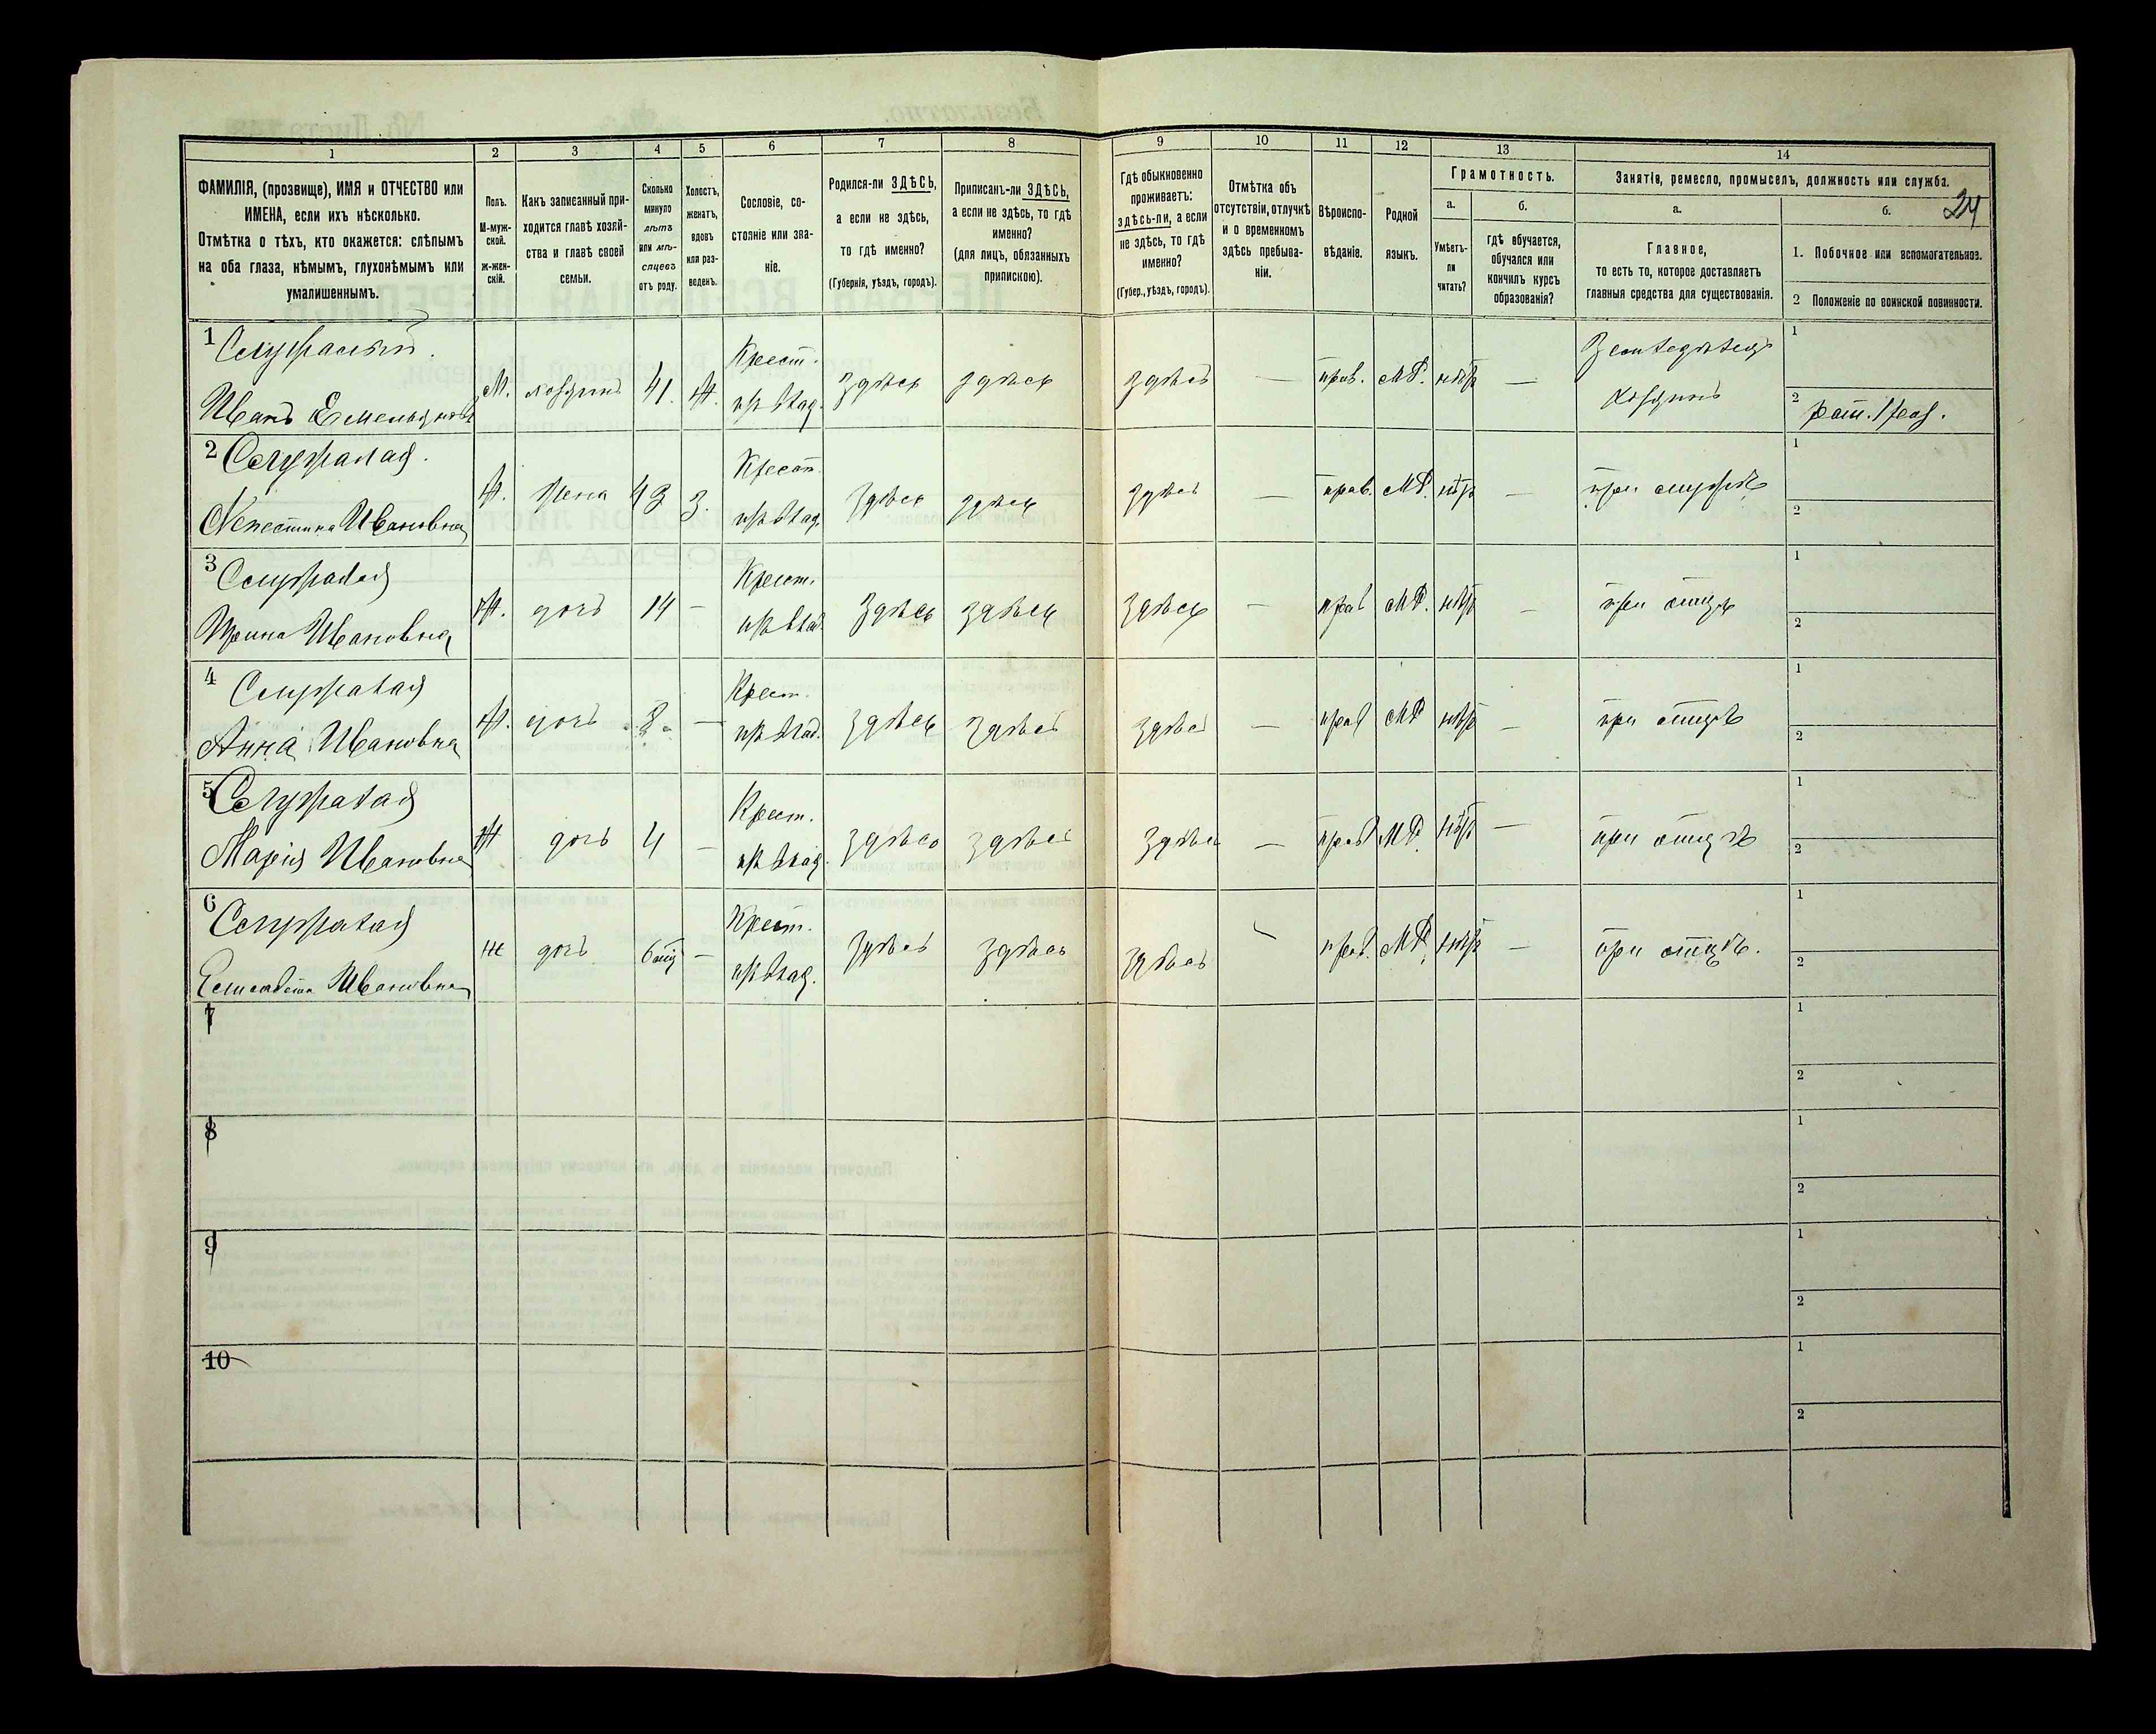 24
1 2 3 4 5 6 7 8 9 10 11 12 13 14
ФАМИЛІЯ, (прозвище), ИМЯ и ОТЧЕСТВО или
ИМЕНА, если ихъ нѣсколько.
Отмѣтка о тѣхъ, кто окажется: слѣпымъ
на оба глаза, нѣмымъ, глухонѣмымъ или
умалишеннымъ.
Полъ.
М-муж-
ской.
ж-жен-
скій.
Какъ записанный при-
ходится главѣ хозяй-
ства и главѣ своей
семьи.
Сколько
минуло
лѣтъ
или мѣ-
сяцевъ
отъ роду.
Холостъ,
женатъ,
вдовъ
или раз-
веденъ.
Сословіе, со-
стояніе или зва-
ніе.
Родился-ли ЗДѢСЬ,
а если не здѣсь,
то гдѣ именно?
(Губернія, уѣздъ, городъ).
Приписанъ-ли ЗДѢСЬ,
а если не здѣсь, то гдѣ
именно?
(для лицъ, обязанныхъ
припискою).
Гдѣ обыкновенно
проживаетъ:
здѣсь-ли, а если
не здѣсь, то гдѣ
именно?
(Губер., уѣздъ, городъ).
Отмѣтка объ
отсутствіи, отлучкѣ
и о временномъ
здѣсь пребыва-
ніи.
Вѣроиспо-
вѣданіе.
Родной
языкъ.
Грамотность.
а.
Умѣетъ-
ли
читать?
б.
гдѣ обучается,
обучался или
кончилъ курсъ
образованія?
Занятіе, ремесло, промыселъ, должность или служба.
а.
Главное,
то есть то, которое доставляетъ
главныя средства для существованія.
б.
1. Побочное или вспомогательное.
2 Положеніе по воинской повинности.
1
Иванъ Емельяновъ
М. хозяинъ 41. Ж. Крест. здѣсь здѣсь здѣсь — прав. МР. нѣтъ —
Земледѣлецъ
хозяинъ
1
2 рат. 1 раз.
2
Ивановна
Ж. жена 43 З. Крест. здѣсь здѣсь здѣсь — прав. МР. нѣтъ — при мужѣ
1
2
3
Ирина Ивановна
Ж. дочь 14 — Крест. здѣсь здѣсь здѣсь — прав МР. нѣтъ — при отцѣ
1
2
4
Анна Ивановна
Ж. дочь 8 — Крест. здѣсь здѣсь здѣсь — прав МР нѣтъ — при отцѣ
1
2
5
Марія Ивановна
Ж дочь 4 — Крест. здѣсь здѣсь здѣсь — прав МР. нѣтъ — при отцѣ
1
2
6
Елисавета Ивановна
Ж дочь 6 мѣц — Крест. здѣсь здѣсь здѣсь — прав. МР. нѣтъ — при отцѣ.
1
2
7
1
2
8
1
2
9
1
2
10
1
2